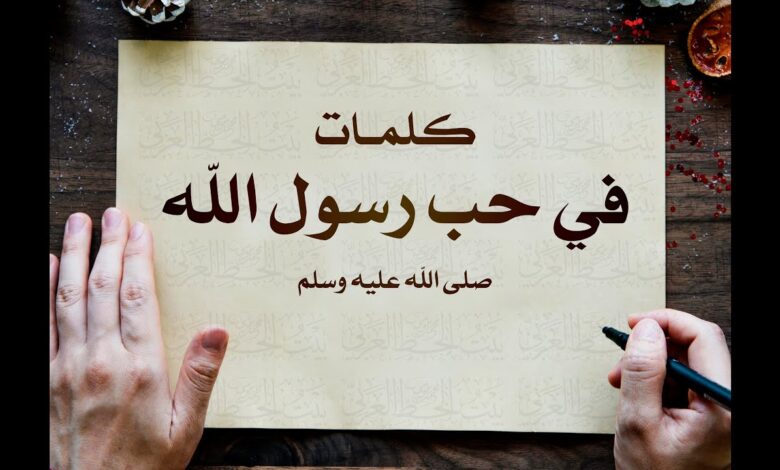 كلمات
في حب رسول الله
صلى الله عليه وسلم